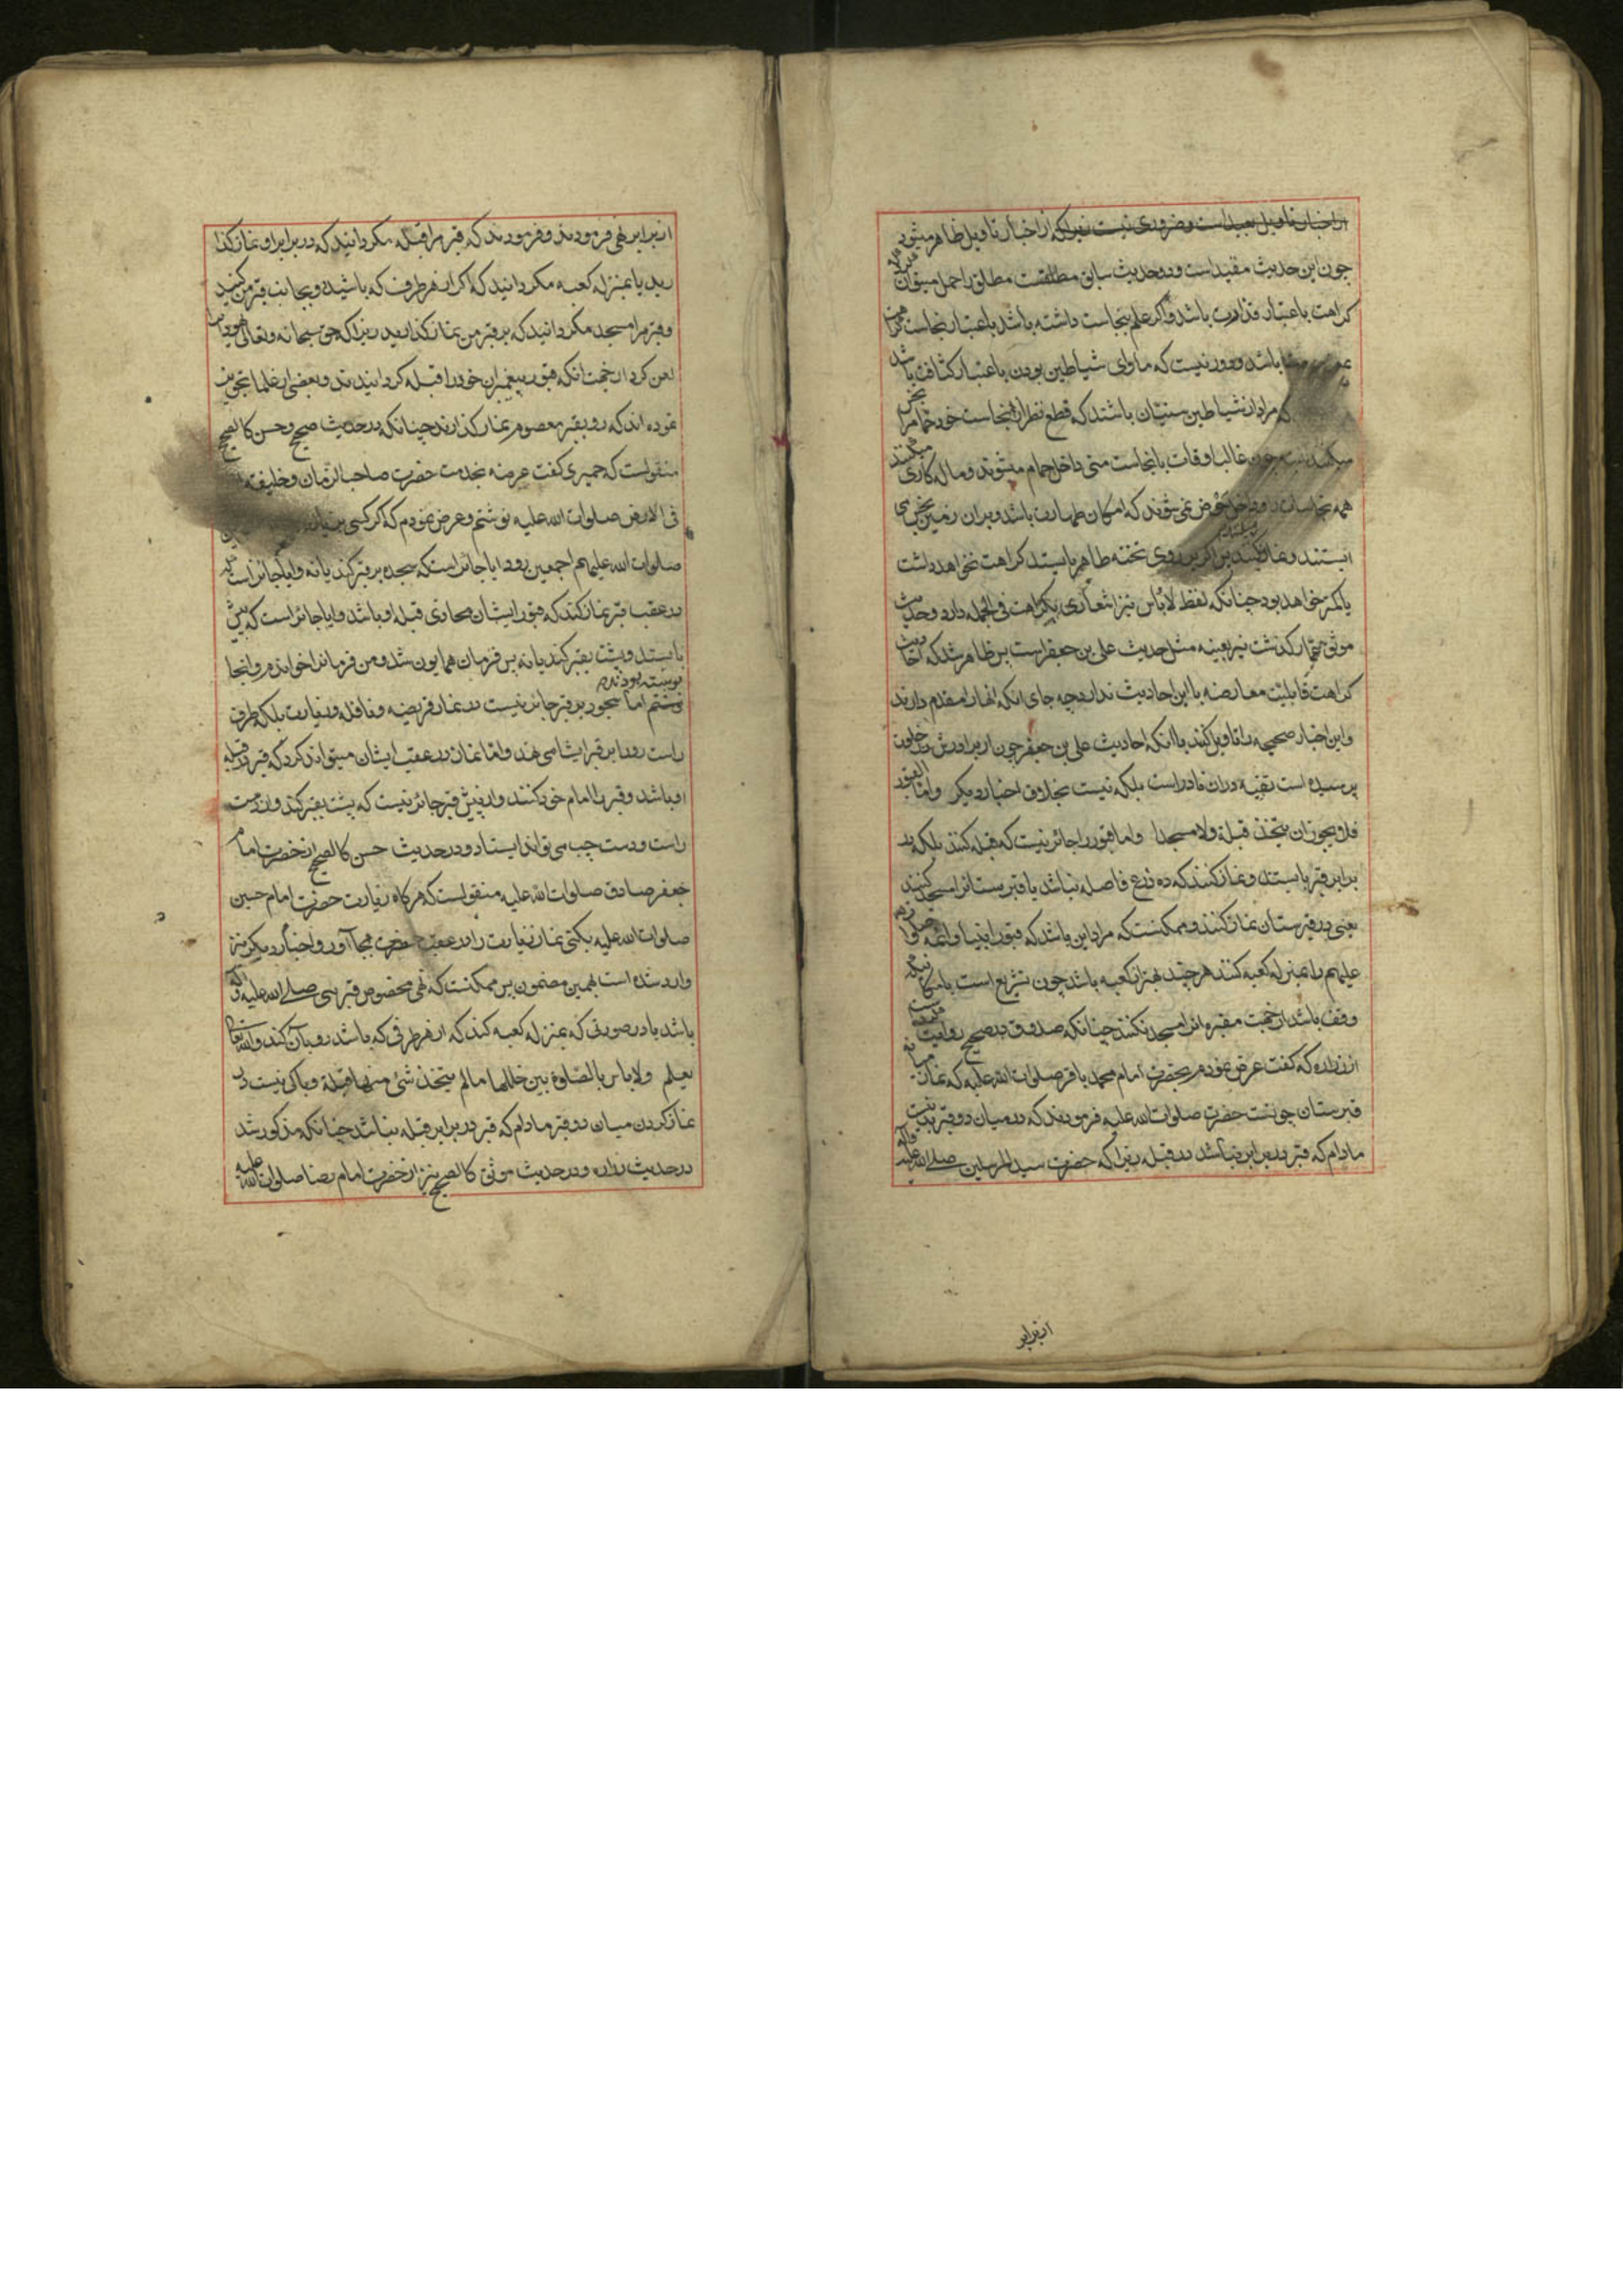 از اخبار تاویل بعید است و ضروری نیست زیرا که از اخبار تاویل ظاهر میشود
چون این حدیث مقید است و دو حدیث سابق مطلقست مطلق را حمل میتوان
کراهت باعتبار قذارت باشد و اکر علم بنجاست داشته باشد باعتبار نجاست
باشد و دور نیست که ماوای شیاطین بودن باعتبار کثافت باشد
که مراد از شیاطین سنیان باشند که قطع نظر از نجاست خود حمام را نجس
میکنند چون غالب اوقات با نجاست منی داخل حمام میشوند و مال کاری میکنند
همه نجاسات و داخل حوض نمی شوند که امکان طهارت باشد و بران زمین نجس می
ایستند و نماز میکنند پس اکر بر روی تخته طاهر بایستد کراهت نخواهد داشت
یا کمتر خواهد بود چنانکه لفظ لاباس نیز اشعاری بکراهت فی الجمله دارد و حدیث
موثق عمار که گذشت نیز بعینه مثل حدیث علی بن جعفر است پس ظاهر شد که احادیث
کراهت قابلیت معارضه با این احادیث ندارد چه جای انکه انها را مقدم دارند
و این اخبار صحیحه را تاویل کنند با انکه احادیث علی بن جعفر چون از برادرش در خلوت
پرسیده است تقیه دران نادر است بلکه نیست بخلاف اخبار دیکر واما القبور
فلا یجوز ان یتخذ قبلة ولا مسجدا واما قبور را جائز نیست که قبله کنند بلکه در
برابر قبر بایستد و نماز کنند که ده ذرع فاصله نباشد یا قبرستانرا مسجد کنند
یعنی در قبرستان نماز کنند و ممکنست که مراد این باشد که قبور انبیا و ائمه صلوات
علیهم را بمنزله کعبه کنند هر چند بهتر از کعبه باشد چون تشریع است یا مکانیکه
وقف باشد از جهت مقبره انرا مسجد نکنند چنانکه صدوق در صحیح روایت
از زراره که کفت عرض نمودم بحضرت امام محمد باقر صلوات الله علیه که نماز میانه
قبرستان چونست حضرت صلوات الله علیه فرمودند که در میان دو قبر بد نیست
مادام که قبر در برابر نباشد در قبله زیرا که حضرت سید المرسلین صلی الله علیه وآله
از برابر
از برابر نهی فرمودند و فرمودند که قبر مرا قبله مکردانید که در برابر او نماز کذا
رید یا بمنزله کعبه مکردانید که اکر از هر طرف که باشید رو بجانب قبر من کنید
و قبر مرا مسجد مکردانید که بر قبر من نماز کذارید زیرا که حق سبحانه و تعالی یهود را
لعن کرد از جهت انکه قبور پیغمبران خود را قبله کردانیدند و بعضی از علما تجویز
نموده اند که رو بقبر معصوم نماز کذارند چنانکه در حدیث صحیح و حسن کالصحیح
منقولست که حمیری کفت عریضه بخدمت حضرت صاحب الزمان و خلیفة
فی الارض صلوات الله علیه نوشتم و عرض نمودم که اکر کسی بزیارت
صلوات الله علیهم اجمعین رود ایا جائز است که سجده بر قبر کند یا نه و ایا جائز است که
در عقب قبر نماز کند که قبور ایشان محاذی قبله او باشد و ایا جائز است که پیش
بایستد و پشت بقبر کند یا نه پس فرمان همایون شد و من فرمانرا خواندم و انجا
نوشته بودند
نوشتم اما سجود بر قبر جائز نیست در نماز فریضه و نافله و زیارت بلکه طرف
راست رو را بر قبر ایشان می نهد و اما نماز در عقب ایشان میتواند کرد که قبر در قبله
او باشد و قبر را امام خود کنند و از پیش قبر جائز نیست که پشت بقبر کند و از دست
راست و دست چپ می تواند ایستاد و در حدیث حسن کالصحیح از حضرت امام
جعفر صادق صلوات الله علیه منقولست که هر کاه زیارت حضرت امام حسین
صلوات الله علیه بکنی نماز زیارت را در عقب حضرت بجا آور و اخبار دیکر نیز
وارد شده است بهمین مضمون پس ممکنست که نهی مخصوص قبر نبی صلی الله علیه وآله
باشد یا در صورتی که بمنزله کعبه کند که از هر طرفی که باشد رو بآن کند والله تعالی
یعلم ولا باس بالصلوة بین خللها مالم یتخذ شئ منها قبلة و باکی نیست در
نماز کردن میان دو قبر مادام که قبر در برابر قبله نباشد چنانکه مذکور شد
در حدیث زراره و در حدیث موثق کالصحیح نیز از حضرت امام رضا صلوات الله علیه